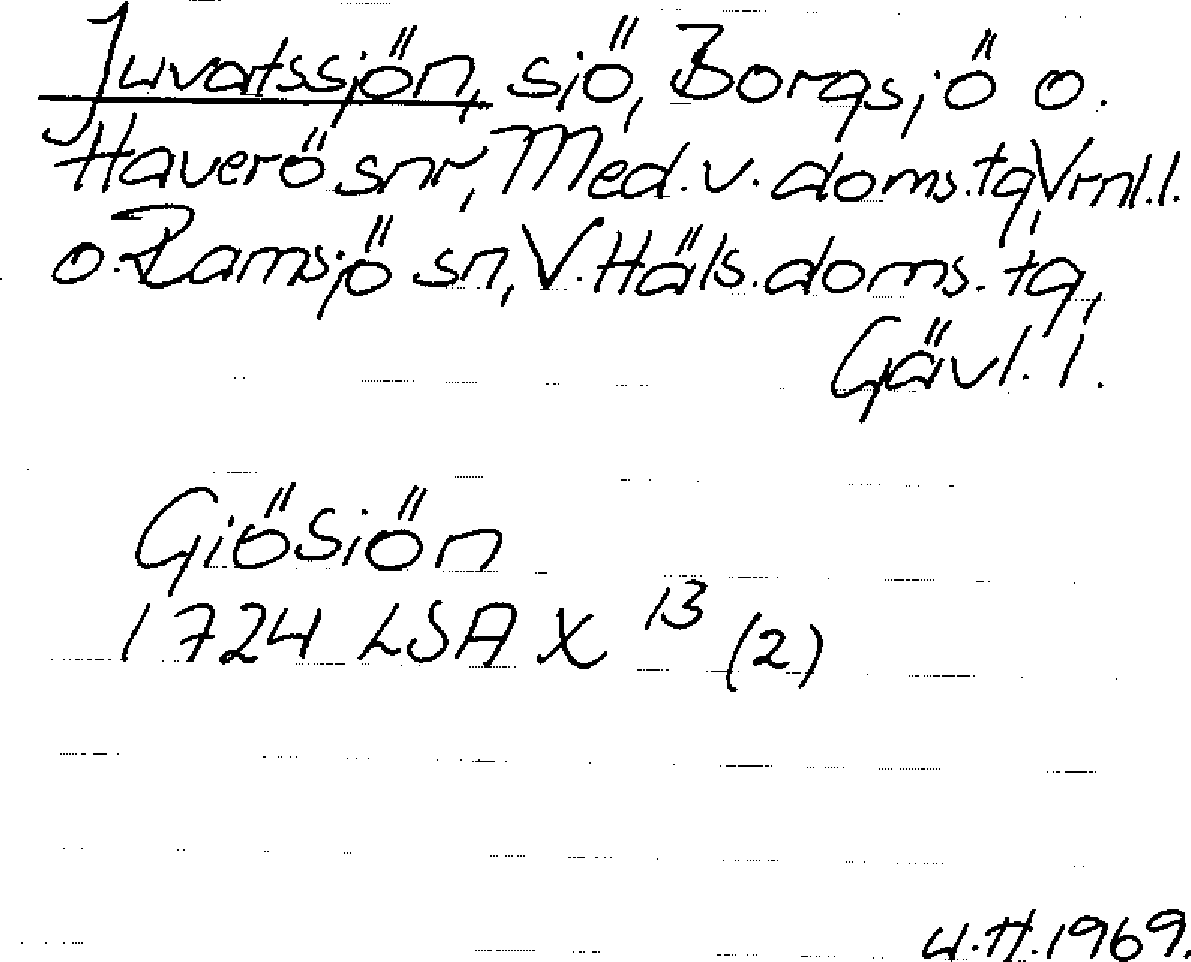 Juvatssjön, sjö, Borgsjö o.
Haverö snr, Med. v. doms. tg, Vrnl. l.
o. Ramsjö sn, V. Häls. doms. tg,
Gävl. l.
Giösiön
1724 LSA X 13 (2)
U.H. 1969.